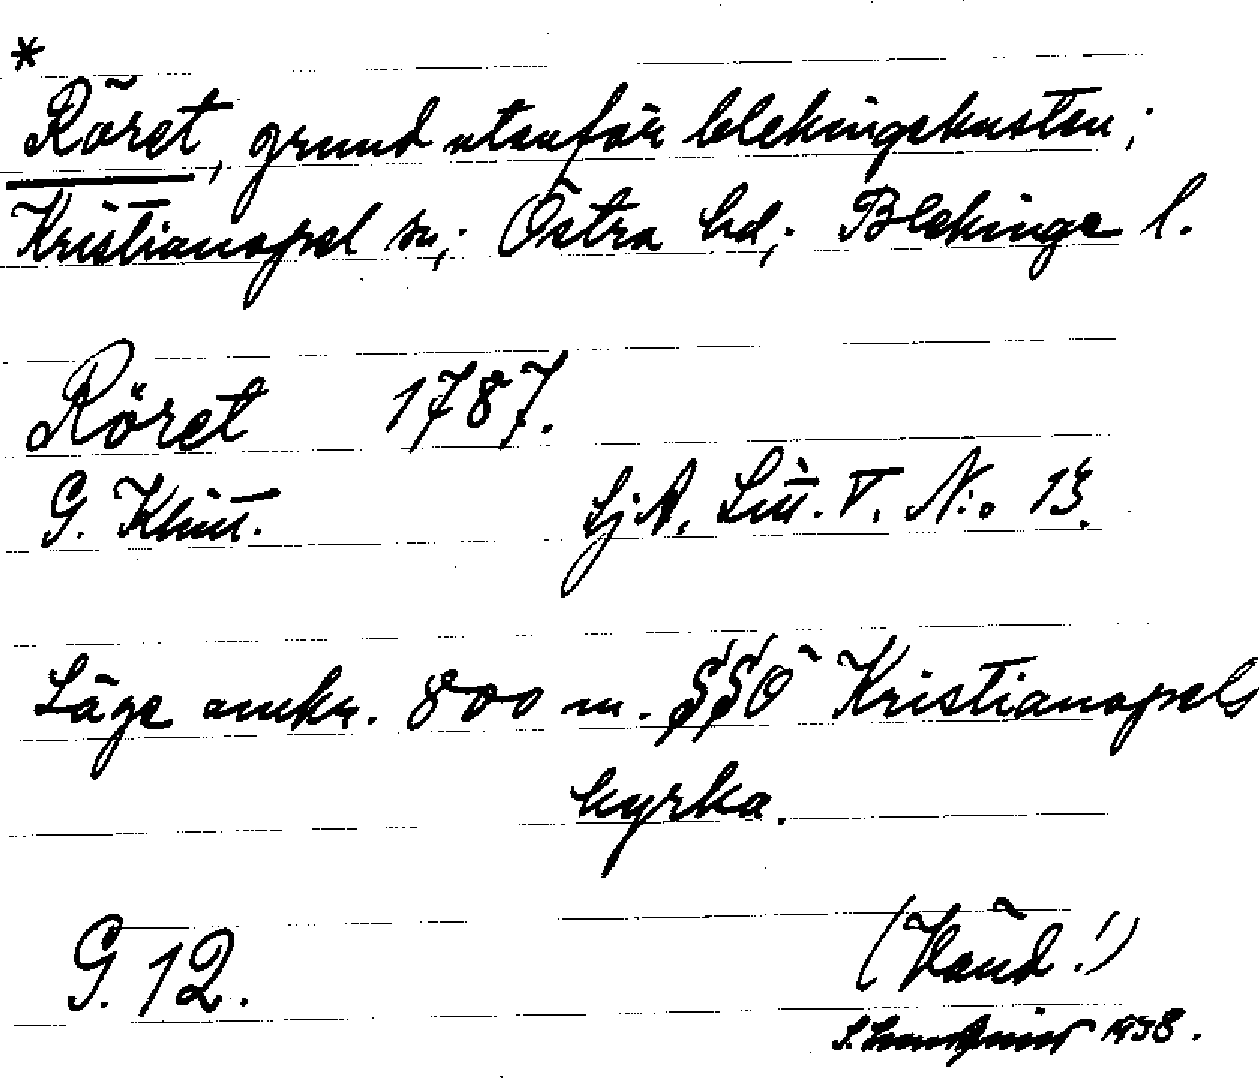 *
Röret, grund utanför blekingekusten;
Kristianopel sn; Östra hd; Blekinge l.
Röret 1787.
G. Klint. SjA. Litt. V. N:o 13.
Läge omkr. 800 m. SSO Kristianopels
kyrka.
G. 12. (Vänd!)
1938.